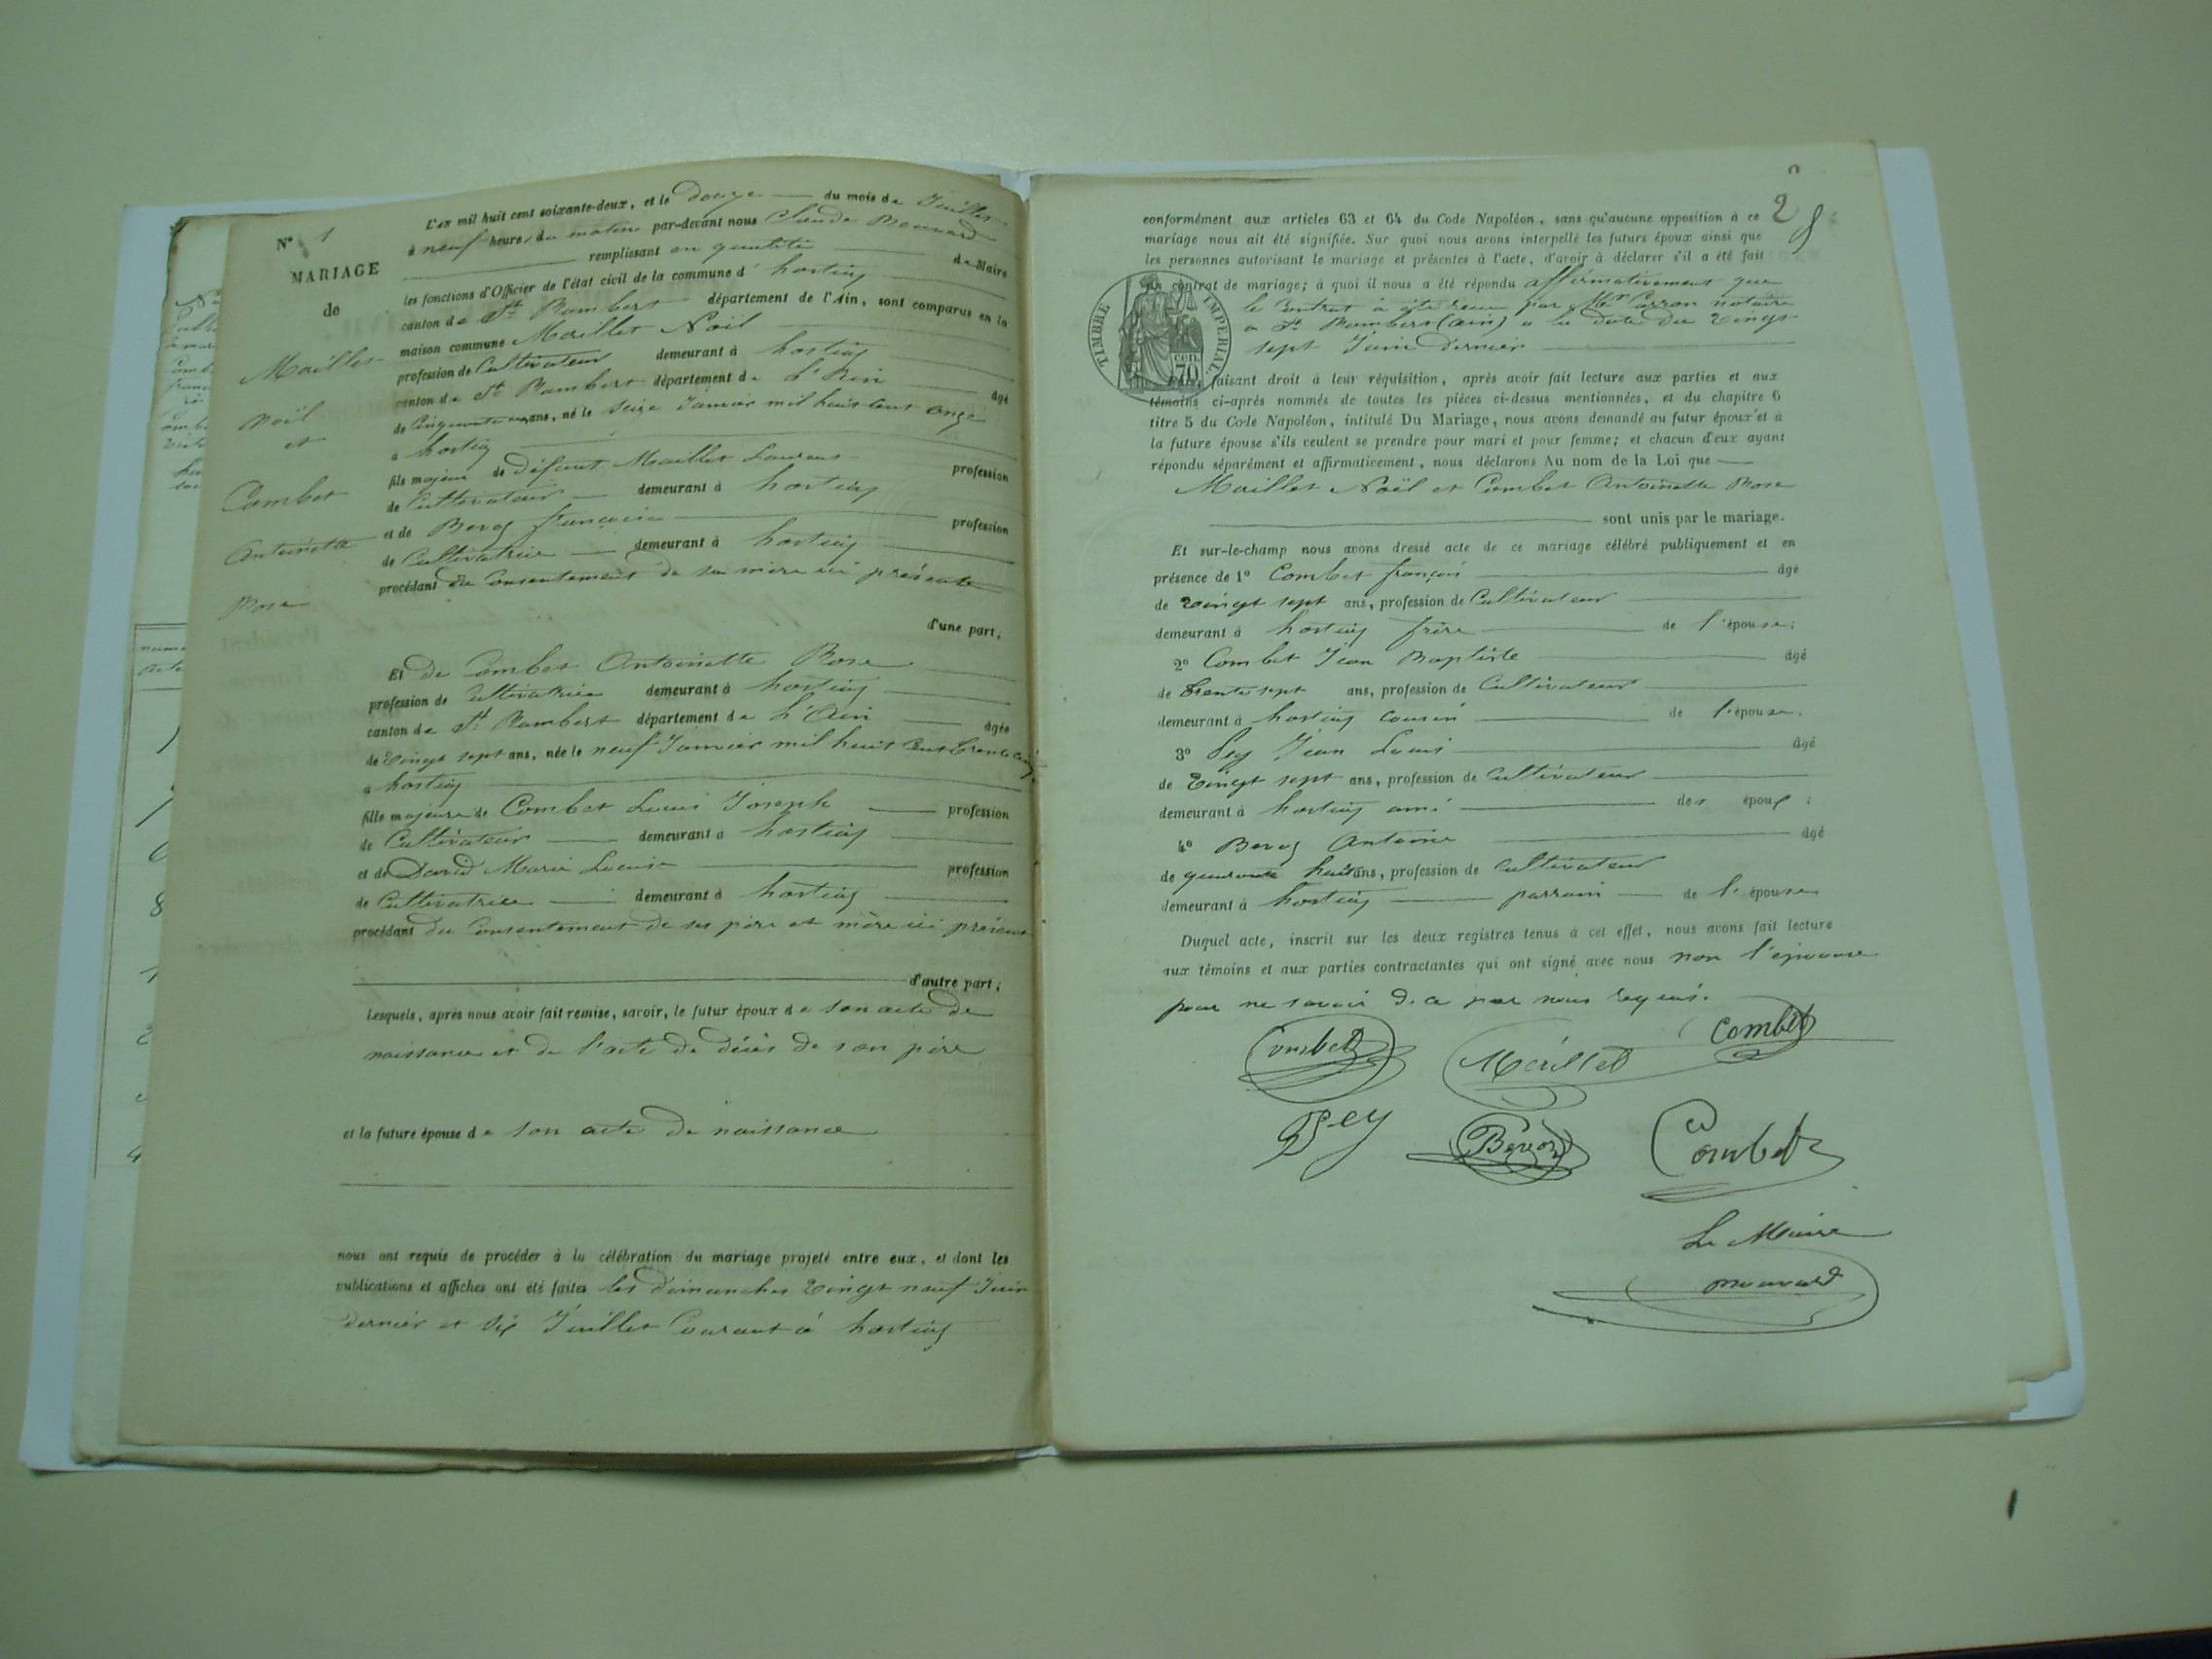 N° 1
MARIAGE
de
Maillet
Noël
et
Combet
Antoinette
Rose
L'an mil huit cent soixante-deux, et le douze du mois de Juillet
à neuf heures du matin par-devant nous Claude
remplissant en qualité de Maire
les fonctions d'Officier de l'état civil de la commune d' hostiaz
canton de St Rambert département de l'Ain, sont comparus en la
maison commune Maillet Noël
profession de Cultivateur demeurant à hostiaz
canton de St Rambert département de L'Ain âgé
de Cinquante un ans, né le Seize Janvier mil huit cent onze
à hostiaz
fils majeur de défunt Maillet Laurent profession
de Cultivateur demeurant à hostiaz
et de françoise profession
de Cultivatrice demeurant à hostiaz
procédant du Consentement de sa mère ici présente
d'une part;
Et de Combet Antoinette Rose
profession de Cultivatrice demeurant à hostiaz
canton de St Rambert département de L'Ain âgée
de Vingt sept ans, née le neuf Janvier mil huit Cent trente cinq
à hostiaz
fille majeure de Combet Louis Joseph profession
de Cultivateur demeurant à hostiaz
et de David Marie Louise profession
de Cultivatrice demeurant à hostiaz
procédant du Consentement de ses père et mère ici présens
d'autre part;
Lesquels, après nous avoir fait remise, savoir, le futur époux de son acte de
naissance et de l'acte de décès de son père
et la future épouse de son acte de naissance
nous ont requis de procéder à la célébration du mariage projeté entre eux, et dont les
publications et affiches ont été faites les dimanches Vingt neuf Juin
dernier et Six Juillet Courant à hostiaz
2
conformément aux articles 63 et 64 du Code Napoléon, sans qu'aucune opposition à ce
mariage nous ait été signifiée. Sur quoi nous avons interpellé les futurs époux ainsi que
les personnes autorisant le mariage et présentes à l'acte, d'avoir à déclarer s'il a été fait
un contrat de mariage; à quoi il nous a été répondu affirmativement que
le Contrat à été reçu par Me notaire
a St Rambert (ain) a la date du Vingt
sept Juin dernier
TIMBRE IMPERIAL
70 cen.
faisant droit à leur réquisition, après avoir fait lecture aux parties et aux
témoins ci-après nommés de toutes les pièces ci-dessus mentionnées, et du chapitre 6
titre 5 du Code Napoléon, intitulé Du Mariage, nous avons demandé au futur époux et à
la future épouse s'ils veulent se prendre pour mari et pour femme; et chacun d'eux ayant
répondu séparément et affirmativement, nous déclarons Au nom de la Loi que
Maillet Noël et Combet Antoinette Rose
sont unis par le mariage.
Et sur-le-champ nous avons dressé acte de ce mariage célébré publiquement et en
présence de 1° Combet françois âgé
de Vingt sept ans, profession de Cultivateur
demeurant à hostiaz frère de l'épouse;
2° Combet Jean Baptiste âgé
de trente sept ans, profession de Cultivateur
demeurant à hostiaz cousin de l'épouse.
3° Pey Jean Louis âgé
de Vingt sept ans, profession de Cultivateur
demeurant à hostiaz ami des époux;
4° Antoine âgé
de quarante huit ans, profession de Cultivateur
demeurant à hostiaz parrain de l'épouse
Duquel acte, inscrit sur les deux registres tenus à cet effet, nous avons fait lecture
aux témoins et aux parties contractantes qui ont signé avec nous non l'épouse
pour ne savoir de ce par nous requis.
Combet Maillet Combet
Pey Combet
Le Maire